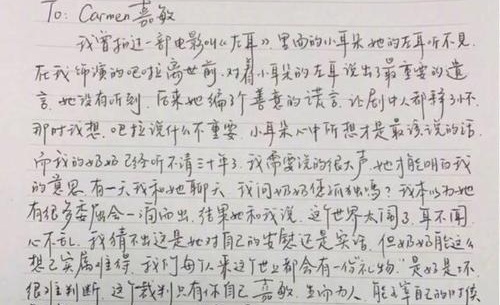 To: Carmen 嘉敏
我曾拍过一部电影叫《左耳》. 里面的小耳朵她的左耳听不见.
在我饰演的吧啦离世前. 对着小耳朵的左耳说出了最重要的遗
言. 她没有听到. 后来她编了个善意的谎言. 让剧中人都释了怀.
那时我想. 吧啦说什么不重要 小耳朵心中所想才是最该说的话
而我的奶奶已经听不清三十年了. 我需要说的很大声. 她才能明白我
的意思. 有一天我和她聊天. 我问奶奶您孤独吗? 我本以为她
有很多委屈会一涌而出. 结果她和我说. 这个世界太闹了. 耳不闻.
心不乱. 我猜不出这是她对自己的安慰还是实话. 但奶奶能这么
想已实属难得. 我们每个人来这个世上都会有一份礼物. 是好是坏
很难判断. 这个裁判只有你自己. 嘉敏. 生而为人. 能